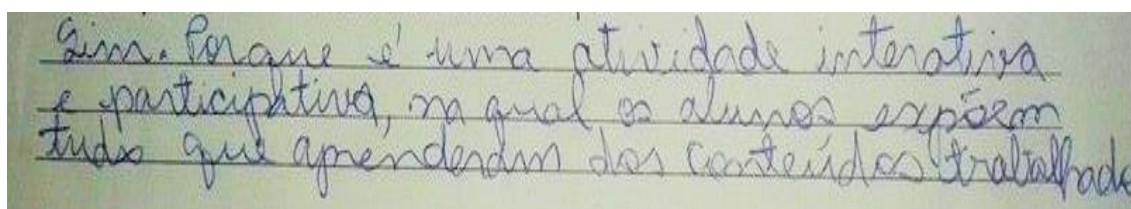 Sim. Porque é uma atividade interativa
e participativa, na qual os alunos expõem
tudo que aprenderam dos conteúdos trabalhado